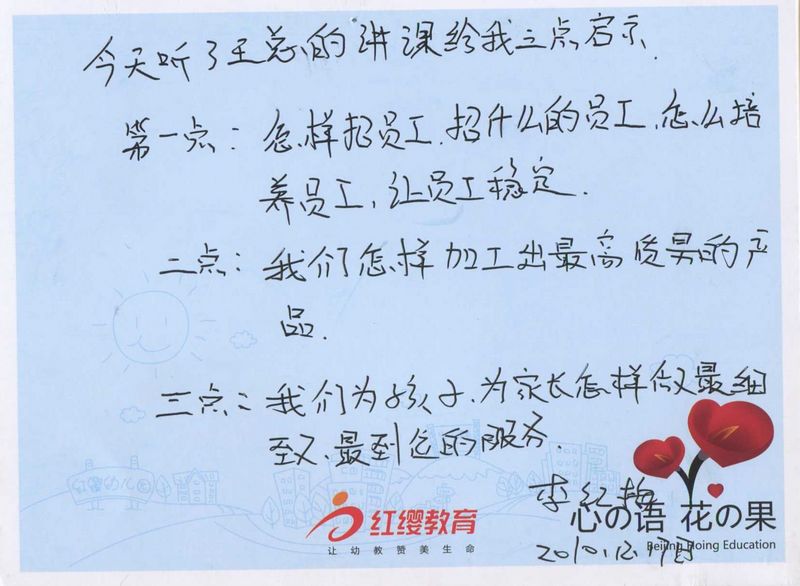 今天听了王总的讲课给我三点启示.
第一点：怎样招员工.招什么的员工.怎么培
养员工，让员工稳定.
二点：我们怎样加工出最高质量的产
品.
三点：我们为孩子.为家长怎样做最细
至.最到位的服务
李红艳
红缨幼儿园
红缨教育
让幼教赞美生命
心の语 花の果
Beijing Hoing Education
2010.12.17日